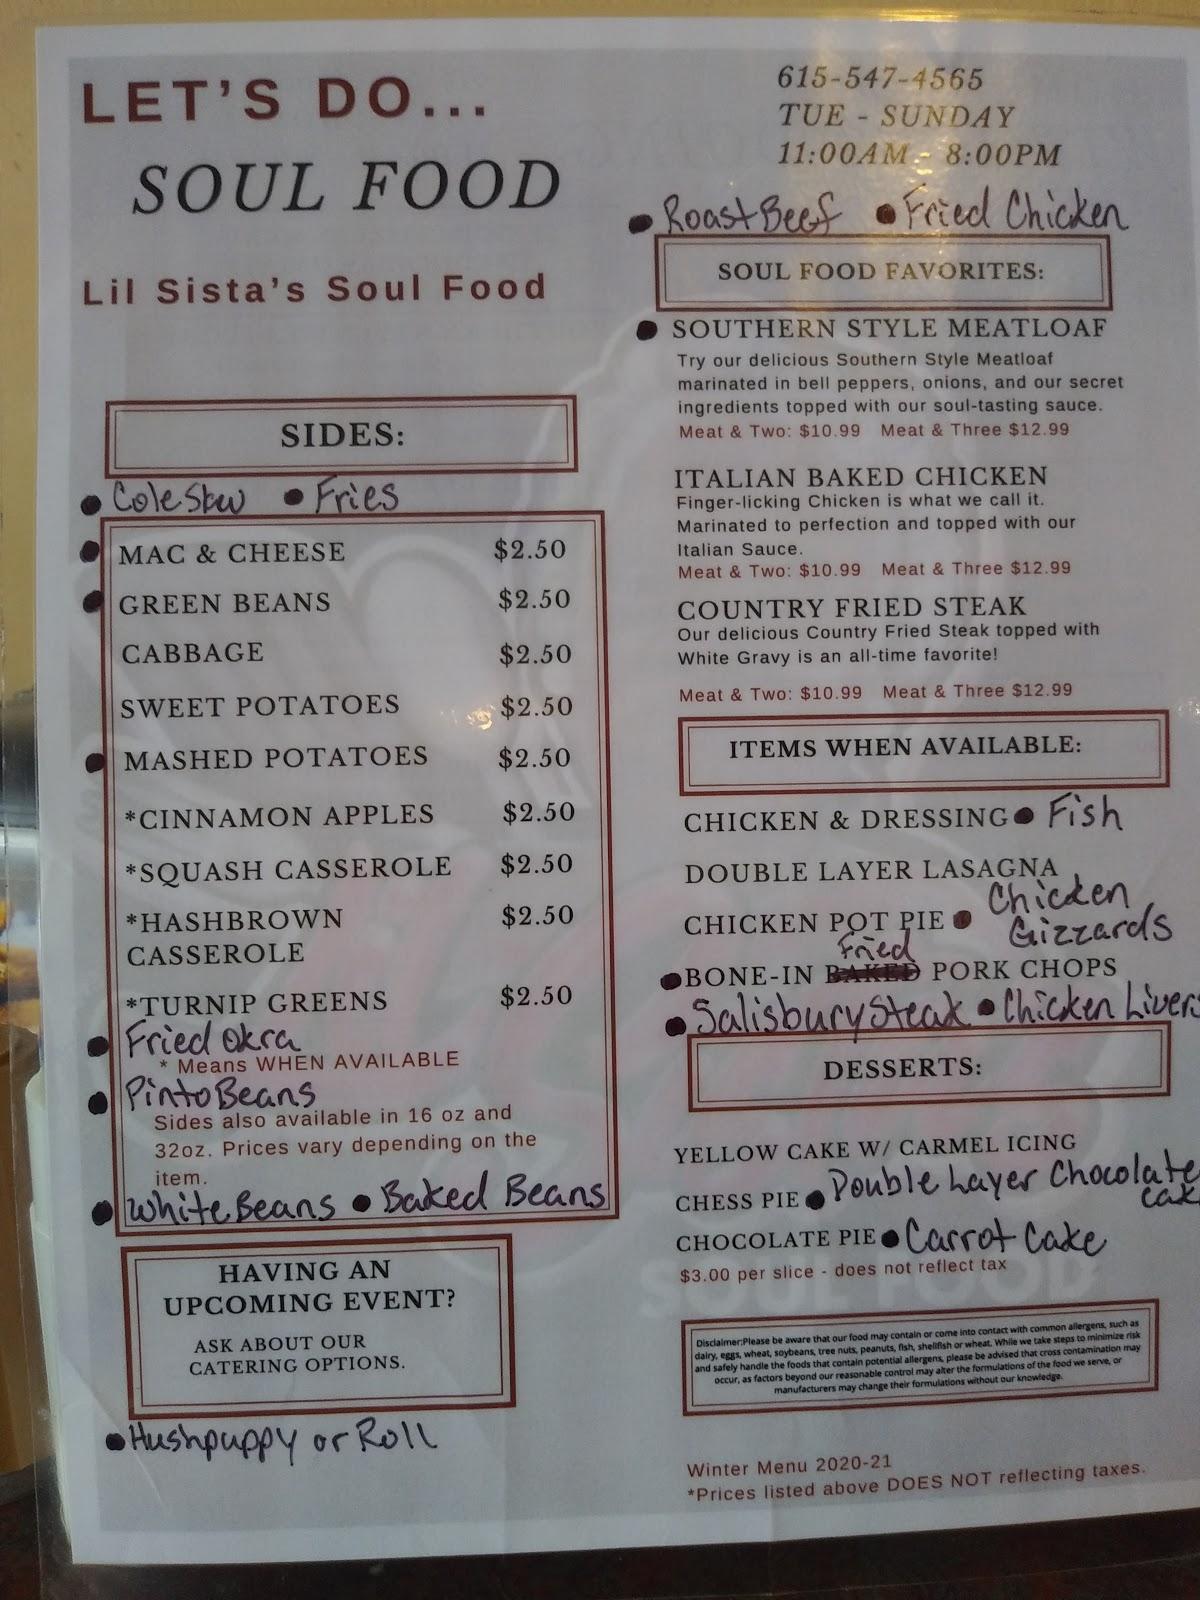 LET'S DO...
SOUL FOOD
Lil Sista's Soul Food
SIDES:
• Coleslaw • Fries
• MAC & CHEESE $2.50
• GREEN BEANS $2.50
CABBAGE $2.50
SWEET POTATOES $2.50
• MASHED POTATOES $2.50
*CINNAMON APPLES $2.50
*SQUASH CASSEROLE $2.50
*HASHBROWN $2.50
CASSEROLE
*TURNIP GREENS $2.50
• Fried Okra
* Means WHEN AVAILABLE
• Pinto Beans
Sides also available in 16 oz and
32oz. Prices vary depending on the
item.
• White Beans • Baked Beans
HAVING AN
UPCOMING EVENT?
ASK ABOUT OUR
CATERING OPTIONS.
• Hushpuppy or Roll
615-547-4565
TUE - SUNDAY
11:00AM - 8:00PM
• Roast Beef • Fried Chicken
SOUL FOOD FAVORITES:
• SOUTHERN STYLE MEATLOAF
Try our delicious Southern Style Meatloaf
marinated in bell peppers, onions, and our secret
ingredients topped with our soul-tasting sauce.
Meat & Two: $10.99 Meat & Three $12.99
ITALIAN BAKED CHICKEN
Finger-licking Chicken is what we call it.
Marinated to perfection and topped with our
Italian Sauce.
Meat & Two: $10.99 Meat & Three $12.99
COUNTRY FRIED STEAK
Our delicious Country Fried Steak topped with
White Gravy is an all-time favorite!
Meat & Two: $10.99 Meat & Three $12.99
ITEMS WHEN AVAILABLE:
CHICKEN & DRESSING • Fish
DOUBLE LAYER LASAGNA
CHICKEN POT PIE • Chicken
Gizzards
Fried
• BONE-IN BAKED PORK CHOPS
• Salisbury Steak • Chicken Livers
DESSERTS:
YELLOW CAKE W/ CARMEL ICING
CHESS PIE • Double Layer Chocolate
Cak
CHOCOLATE PIE • Carrot Cake
$3.00 per slice - does not reflect tax
SOUL FOOD
Disclaimer:Please be aware that our food may contain or come into contact with common allergens, such as
dairy, eggs, wheat, soybeans, tree nuts, peanuts, fish, shellfish or wheat. While we take steps to minimize risk
and safely handle the foods that contain potential allergens, please be advised that cross contamination may
occur, as factors beyond our reasonable control may alter the formulations of the food we serve, or
manufacturers may change their formulations without our knowledge.
Winter Menu 2020-21
*Prices listed above DOES NOT reflecting taxes.